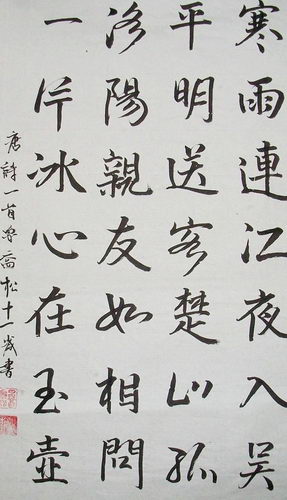 寒雨連江夜入吴
平明送客楚山孤
洛陽親友如相問
一片冰心在玉壺
唐詩一首 喬松十一歲書